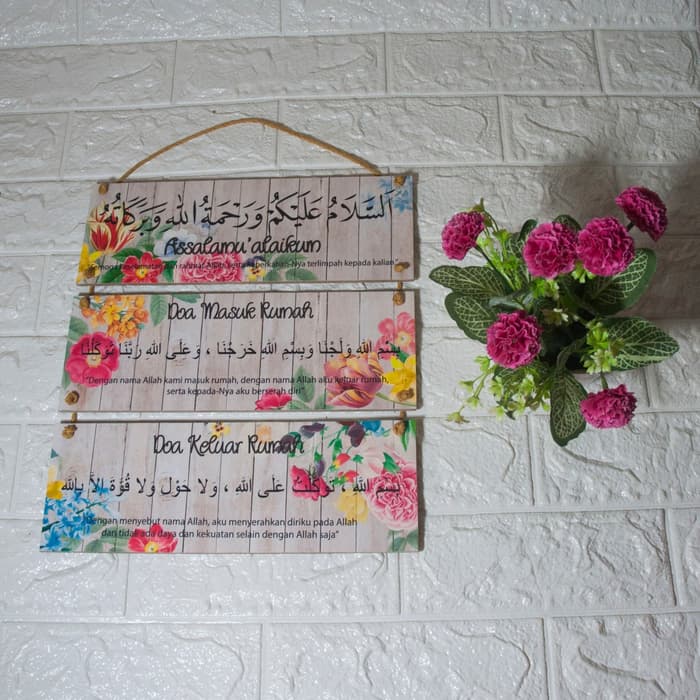 اَلسَّلَامُ عَلَيْكُمْ وَرَحْمَةُ اللهِ وَبَرَكَاتُهُ
Assalamu'alaikum
keselamatan dan rahmat Allah serta keberkahan-Nya terlimpah kepada kalian"
Doa Masuk Rumah
بِسْمِ اللهِ وَلَجْنَا وَبِسْمِ اللهِ خَرَجْنَا ، وَعَلَى اللهِ رَبِّنَا تَوَكَّلْنَا
"Dengan nama Allah kami masuk rumah, dengan nama Allah aku keluar rumah,
serta kepada-Nya aku berserah diri"
Doa Keluar Rumah
بِسْمِ اللَّهِ ، تَوَكَّلْتُ عَلَى اللهِ ، وَلَا حَوْلَ وَلَا قُوَّةَ اِلاَّ بِاللَّهِ
"Dengan menyebut nama Allah, aku menyerahkan diriku pada Allah
dan tidak ada daya dan kekuatan selain dengan Allah saja"